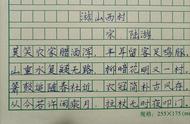 游山西村
宋 陆游
莫笑农家腊酒浑，丰年留客足鸡豚。
山重水复疑无路，柳暗花明又一村。
箫鼓追随春社近，衣冠简朴古风存。
从今若许闲乘月，拄杖无时夜叩门。
规格：255×175(mm)